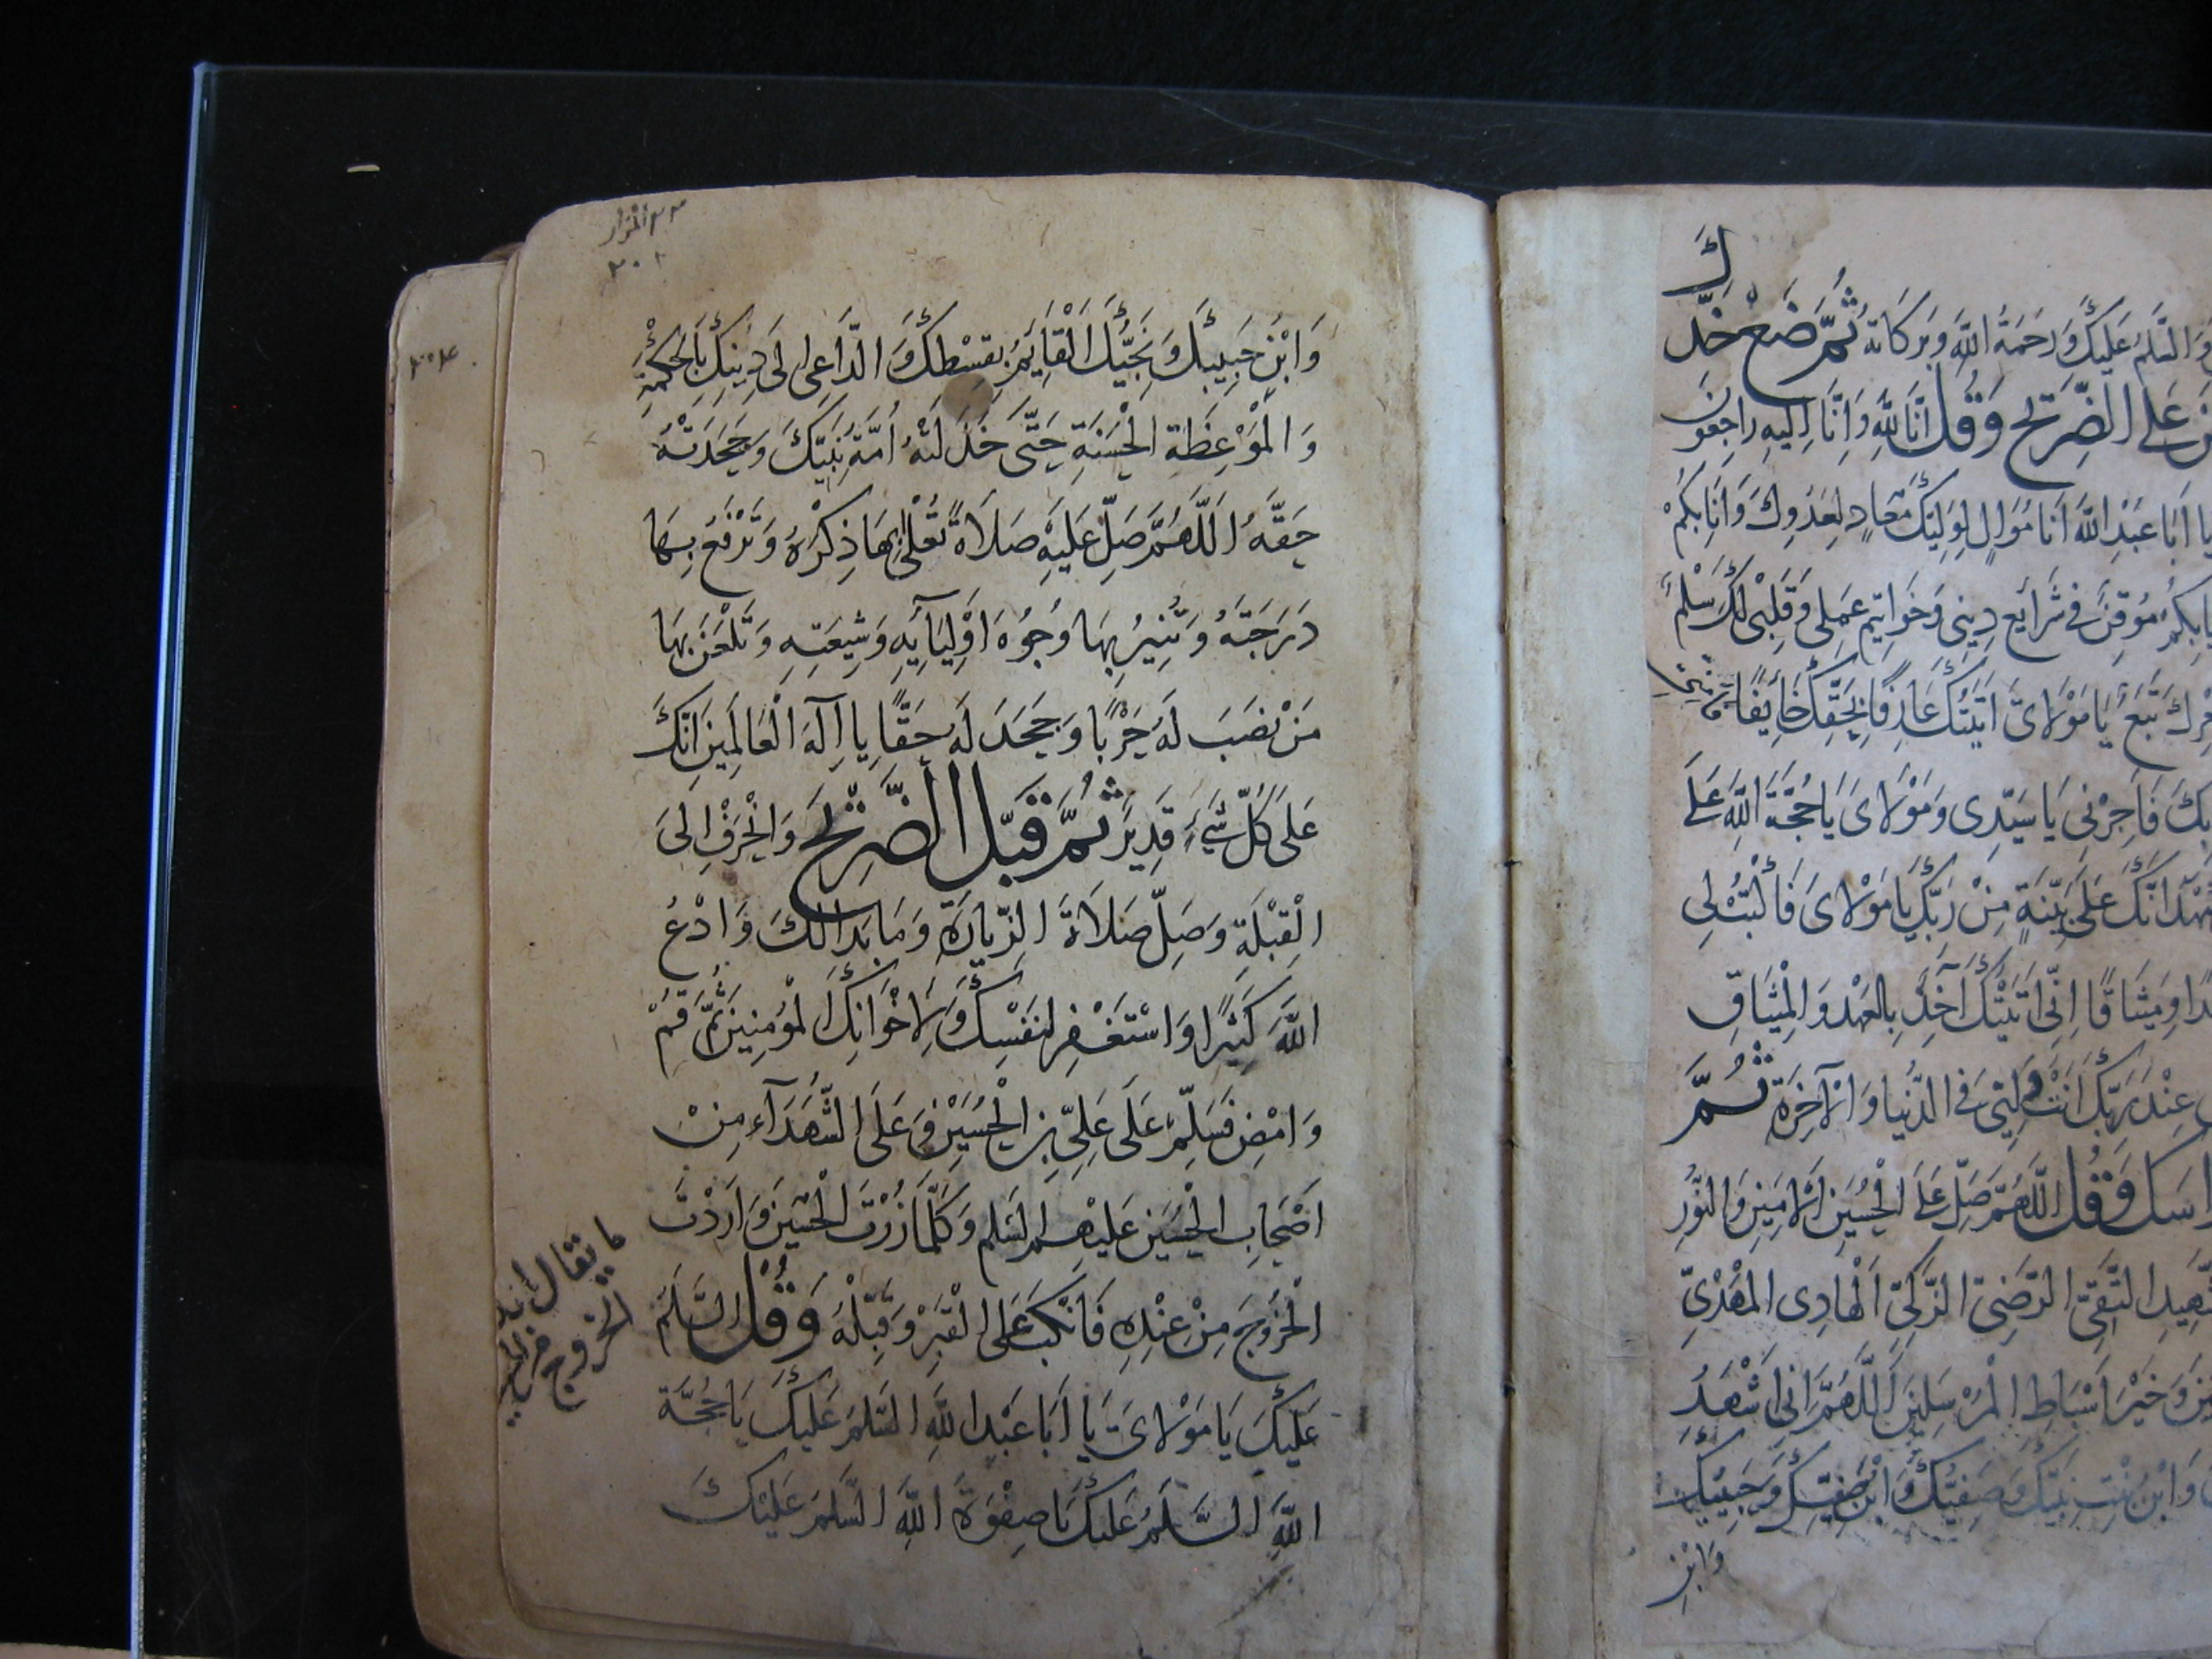 كَ
وَالسَّلَمُ عَلَيْكَ وَرَحْمَةُ اللَّهِ وَبَرَكَاتُهُ ثُمَّ ضَعْ خَدَّ
عَلَى الضَّرِيحِ وَقُلْ اِنَّا لِلَّهِ وَاِنَّا اِلَيْهِ رَاجِعُونَ
يَا اَبَا عَبْدِ اللَّهِ اَنَا مُوَالٍ لِوَلِيِّكَ مُعَادٍ لِعَدُوِّكَ وَاَنَا بِكُمْ
بِكُمْ مُوقِنٌ فِي شَرَائِعِ دِينِي وَخَوَاتِيمِ عَمَلِي وَقَلْبِي لَكَ سَلْمٌ
تَبَعٌ يَا مَوْلَايَ اَتَيْتُكَ عَارِفًا بِحَقِّكَ خَايِفًا
بِكَ فَاَجِرْنِي يَا سَيِّدِي وَمَوْلَايَ يَا حُجَّةَ اللَّهِ عَلَى
اَنَّكَ عَلَى بَيِّنَةٍ مِنْ رَبِّكَ يَا مَوْلَايَ فَأَثْبِتْ لِي
وَمِيثَاقًا اِنِّي اَتَيْتُكَ آخُذُ بِالْعَهْدِ وَالْمِيثَاقِ
عِنْدَ رَبِّكَ اَنْتَ وَلِيِّي فِي الدُّنْيَا وَالْآخِرَةِ ثُمَّ
وَقُلْ اللَّهُمَّ صَلِّ عَلَى الْحُسَيْنِ الْاَمِينِ وَالنُّورِ
التَّقِيِّ الرَّضِيِّ الزَّكِيِّ الْهَادِي الْمَهْدِيِّ
وَخَيْرِ اَسْبَاطِ الْمُرْسَلِينَ اَللَّهُمَّ اِنِّي اَشْهَدُ
وَابْنُ بِنْتِ نَبِيِّكَ وَصَفِيُّكَ وَابْنُ صَفِيِّكَ وَحَبِيبُكَ
وَابْنِ
المزار
وَابْنِ حَبِيبِكَ وَنَجِيُّكَ الْقَايِمُ بِقِسْطِكَ وَالدَّاعِي اِلَى دِينِكَ بِالْحِكْمَةِ
وَالْمَوْعِظَةِ الْحَسَنَةِ حَتَّى خَذَلَتْهُ اُمَّةُ نَبِيِّكَ وَجَحَدَتْهُ
حَقَّهُ اَللَّهُمَّ صَلِّ عَلَيْهِ صَلَاةً تُعْلِي بِهَا ذِكْرَهُ وَتَرْفَعُ بِهَا
دَرَجَتَهُ وَتُنِيرُ بِهَا وُجُوهَ اَوْلِيَآيِهِ وَشِيعَتِهِ وَتَلْعَنُ بِهَا
مَنْ نَصَبَ لَهُ حَرْبًا وَجَحَدَ لَهُ حَقًّا يَا اِلَهَ الْعَالَمِينَ اِنَّكَ
عَلَى كُلِّ شَيْءٍ قَدِيرٌ ثُمَّ قَبِّلِ الضَّرِيحَ وَانْحَرِفْ اِلَى
الْقِبْلَةِ وَصَلِّ صَلَاةَ الزِّيَارَةِ وَمَا بَدَا لَكَ وَادْعُ
اللَّهَ كَثِيرًا وَاسْتَغْفِرْ لِنَفْسِكَ وَلِاِخْوَانِكَ الْمُؤْمِنِينَ ثُمَّ قُمْ
وَامْضِ فَسَلِّمْ عَلَى عَلِيِّ بْنِ الْحُسَيْنِ وَعَلَى الشُّهَدَآءِ مِنْ
اَصْحَابِ الْحُسَيْنِ عَلَيْهِمُ السَّلَمُ وَكُلَّمَا زُرْتَ الْحُسَيْنَ وَاَرَدْتَ
الْخُرُوجَ مِنْ عِنْدِهِ فَانْكَبَّ عَلَى الْقَبْرِ وَقَبِّلْهُ وَقُلِ السَّلَمُ
عَلَيْكَ يَا مَوْلَايَ يَا اَبَا عَبْدِ اللَّهِ السَّلَمُ عَلَيْكَ يَا حُجَّةَ
اللَّهِ السَّلَمُ عَلَيْكَ يَا صِفْوَةَ اللَّهِ السَّلَمُ عَلَيْكَ
ما يقال
الخروج